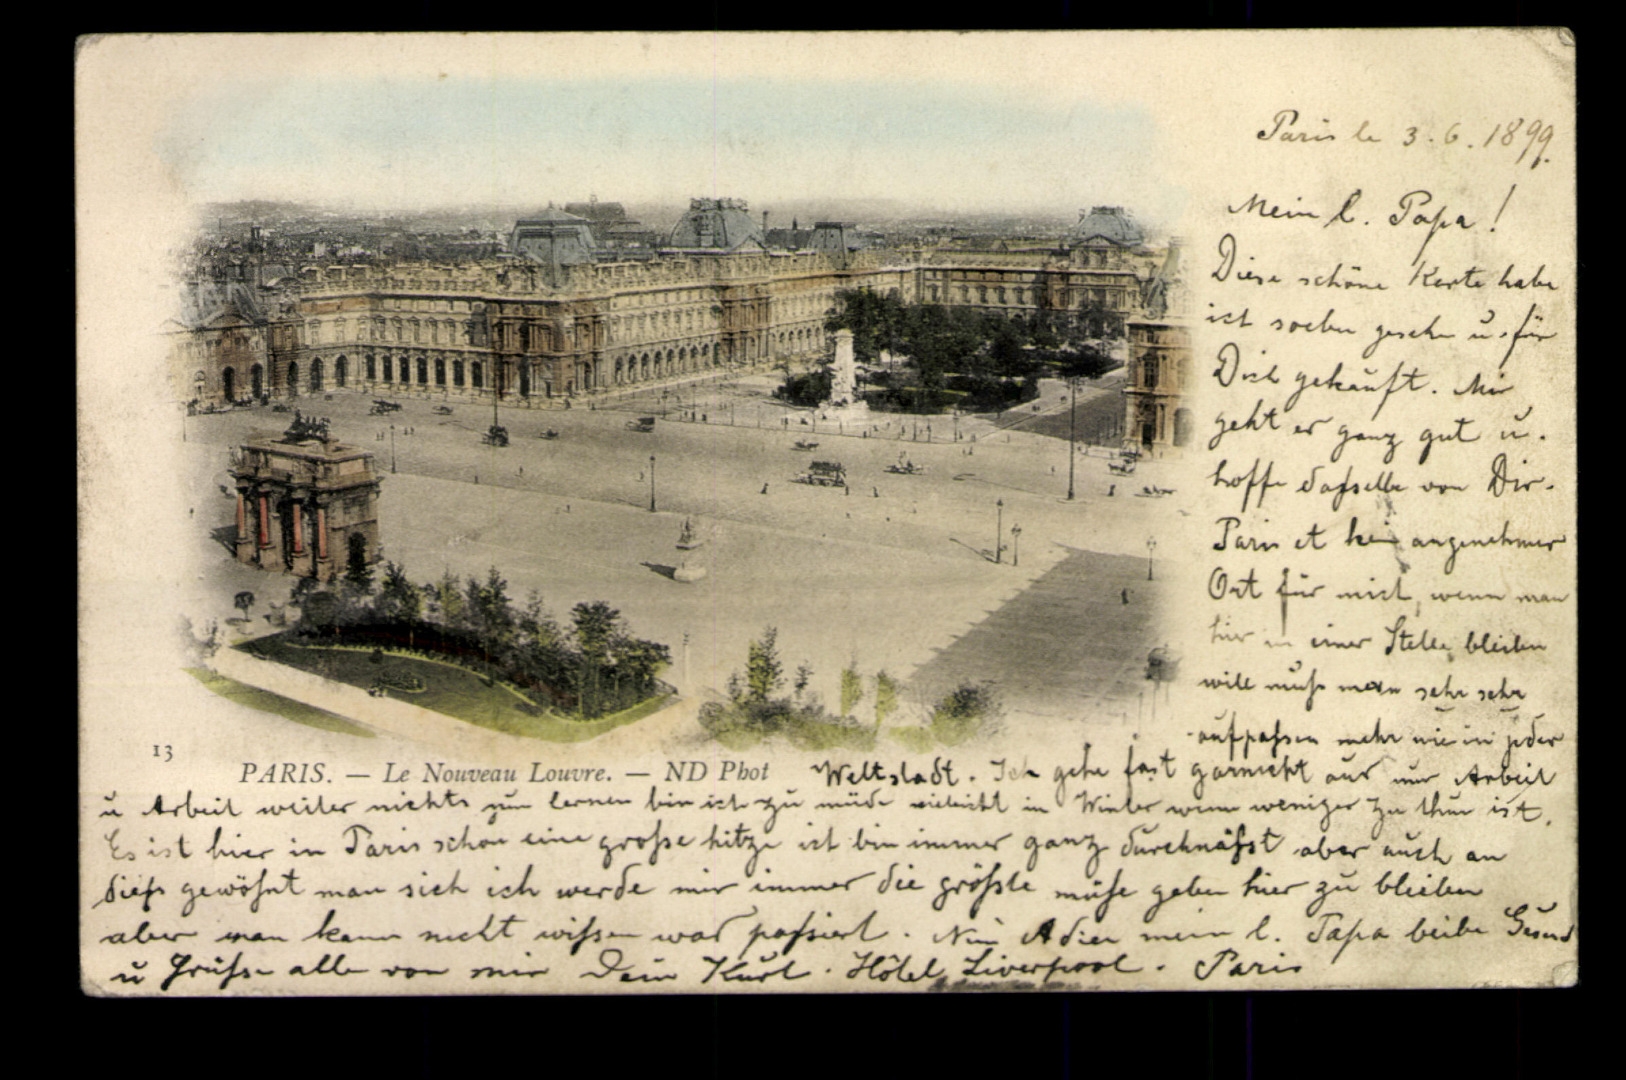 Paris le 3.6.1899.
Mein l. Papa!
Diese schöne Karte habe
ich soeben gesehn u. für
Dich gekäuft. Mir
geht es ganz gut u.
hoffe dasselbe von Dir.
Paris et kein angenehmer
Ort für mich, wenn man
hier in einer Stelle bleiben
will muß man sehr sehr
aufpassen mehr wie in jeder
13
PARIS. — Le Nouveau Louvre. — ND Phot
Weltstadt. Ich gehe fast garnicht aus nur Arbeit
u Arbeit weiter nichts zum lernen bin ich zu müde vieleicht in Winter wenn weniger zu thun ist.
Es ist hier in Paris schon eine große hitze ich bin immer ganz durchnäßt aber auch an
dieß gewöhnt man sich ich werde mir immer die größte mühe geben hier zu bleiben
aber man kann nicht wißen was paßiert. Nun Adieu mein l. Papa bleibe Gesund
u Grüße alle von mir Dein Kurt. Hôtel Liverpool. Paris